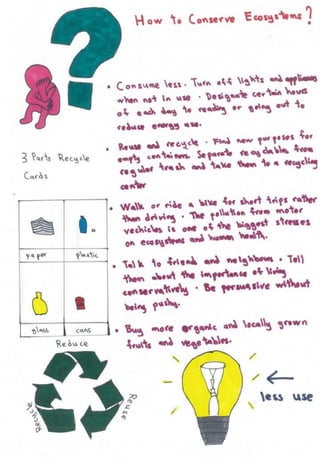 How to Conserve Ecosystems?
• Consume less. Turn off lights and appliances
when not in use. Designate certain hours
of each day to reading or going out to
reduce energy use.
• Reuse and recycle. Find new purposes for
empty containers. Separate recyclable from
regular trash and take them to a recycling
center
3 Parts Recycle
Cards
• Walk or ride a bike for short trips rather
than driving. The pollution from motor
vechicles is one of the biggest stresses
on ecosystems and human health.
paper
plastic
• Talk to friend and neighbows. Tell
them about the importance of living
conservatively. Be persuasive without
being pushy.
glass
cans
• Buy more organic and locally grown
fruits and vegetables.
Reduce
Recycle
Reuse
less use